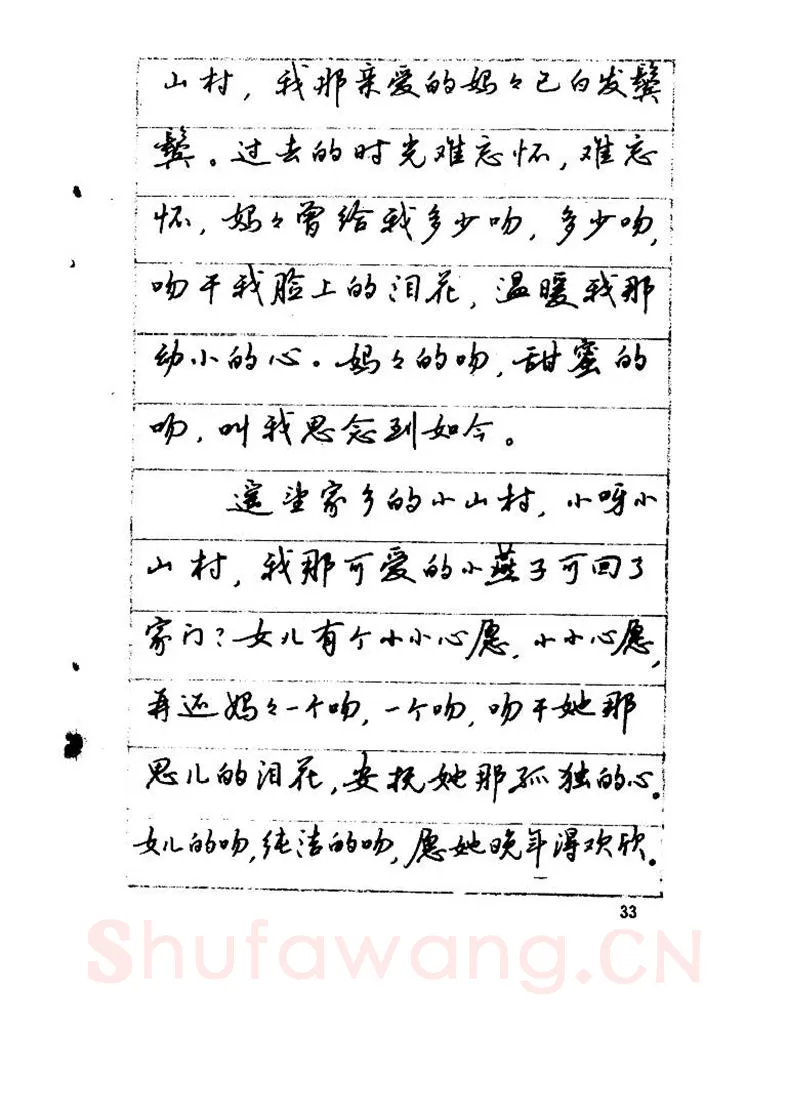 山村，我那亲爱的妈々已白发鬓
鬓。过去的时光难忘怀，难忘
怀，妈々曾给我多少吻，多少吻，
吻干我脸上的泪花，温暖我那
幼小的心。妈々的吻，甜蜜的
吻，叫我思念到如今。
遥望家乡的小山村，小呀小
山村，我那可爱的小燕子可回了
家门？女儿有个小小心愿，小小心愿，
再还妈々一个吻，一个吻，吻干她那
思儿的泪花，安抚她那孤独的心。
女儿的吻，纯洁的吻，愿她晚年得欢欣。
33
Shufawang.CN